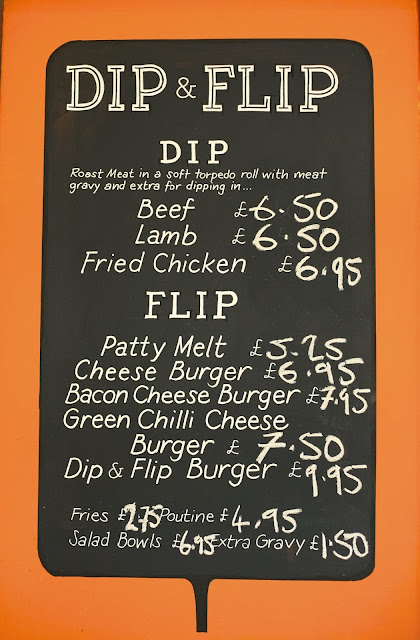 DIP & FLIP
DIP
Roast Meat in a soft torpedo roll with meat
gravy and extra for dipping in...
Beef £6.50
Lamb £6.50
Fried Chicken £6.95
FLIP
Patty Melt £5.25
Cheese Burger £6.95
Bacon Cheese Burger £7.95
Green Chilli Cheese
Burger £7.50
Dip & Flip Burger £9.95
Fries £2.75 Poutine £4.95
Salad Bowls £6.95 Extra Gravy £1.50